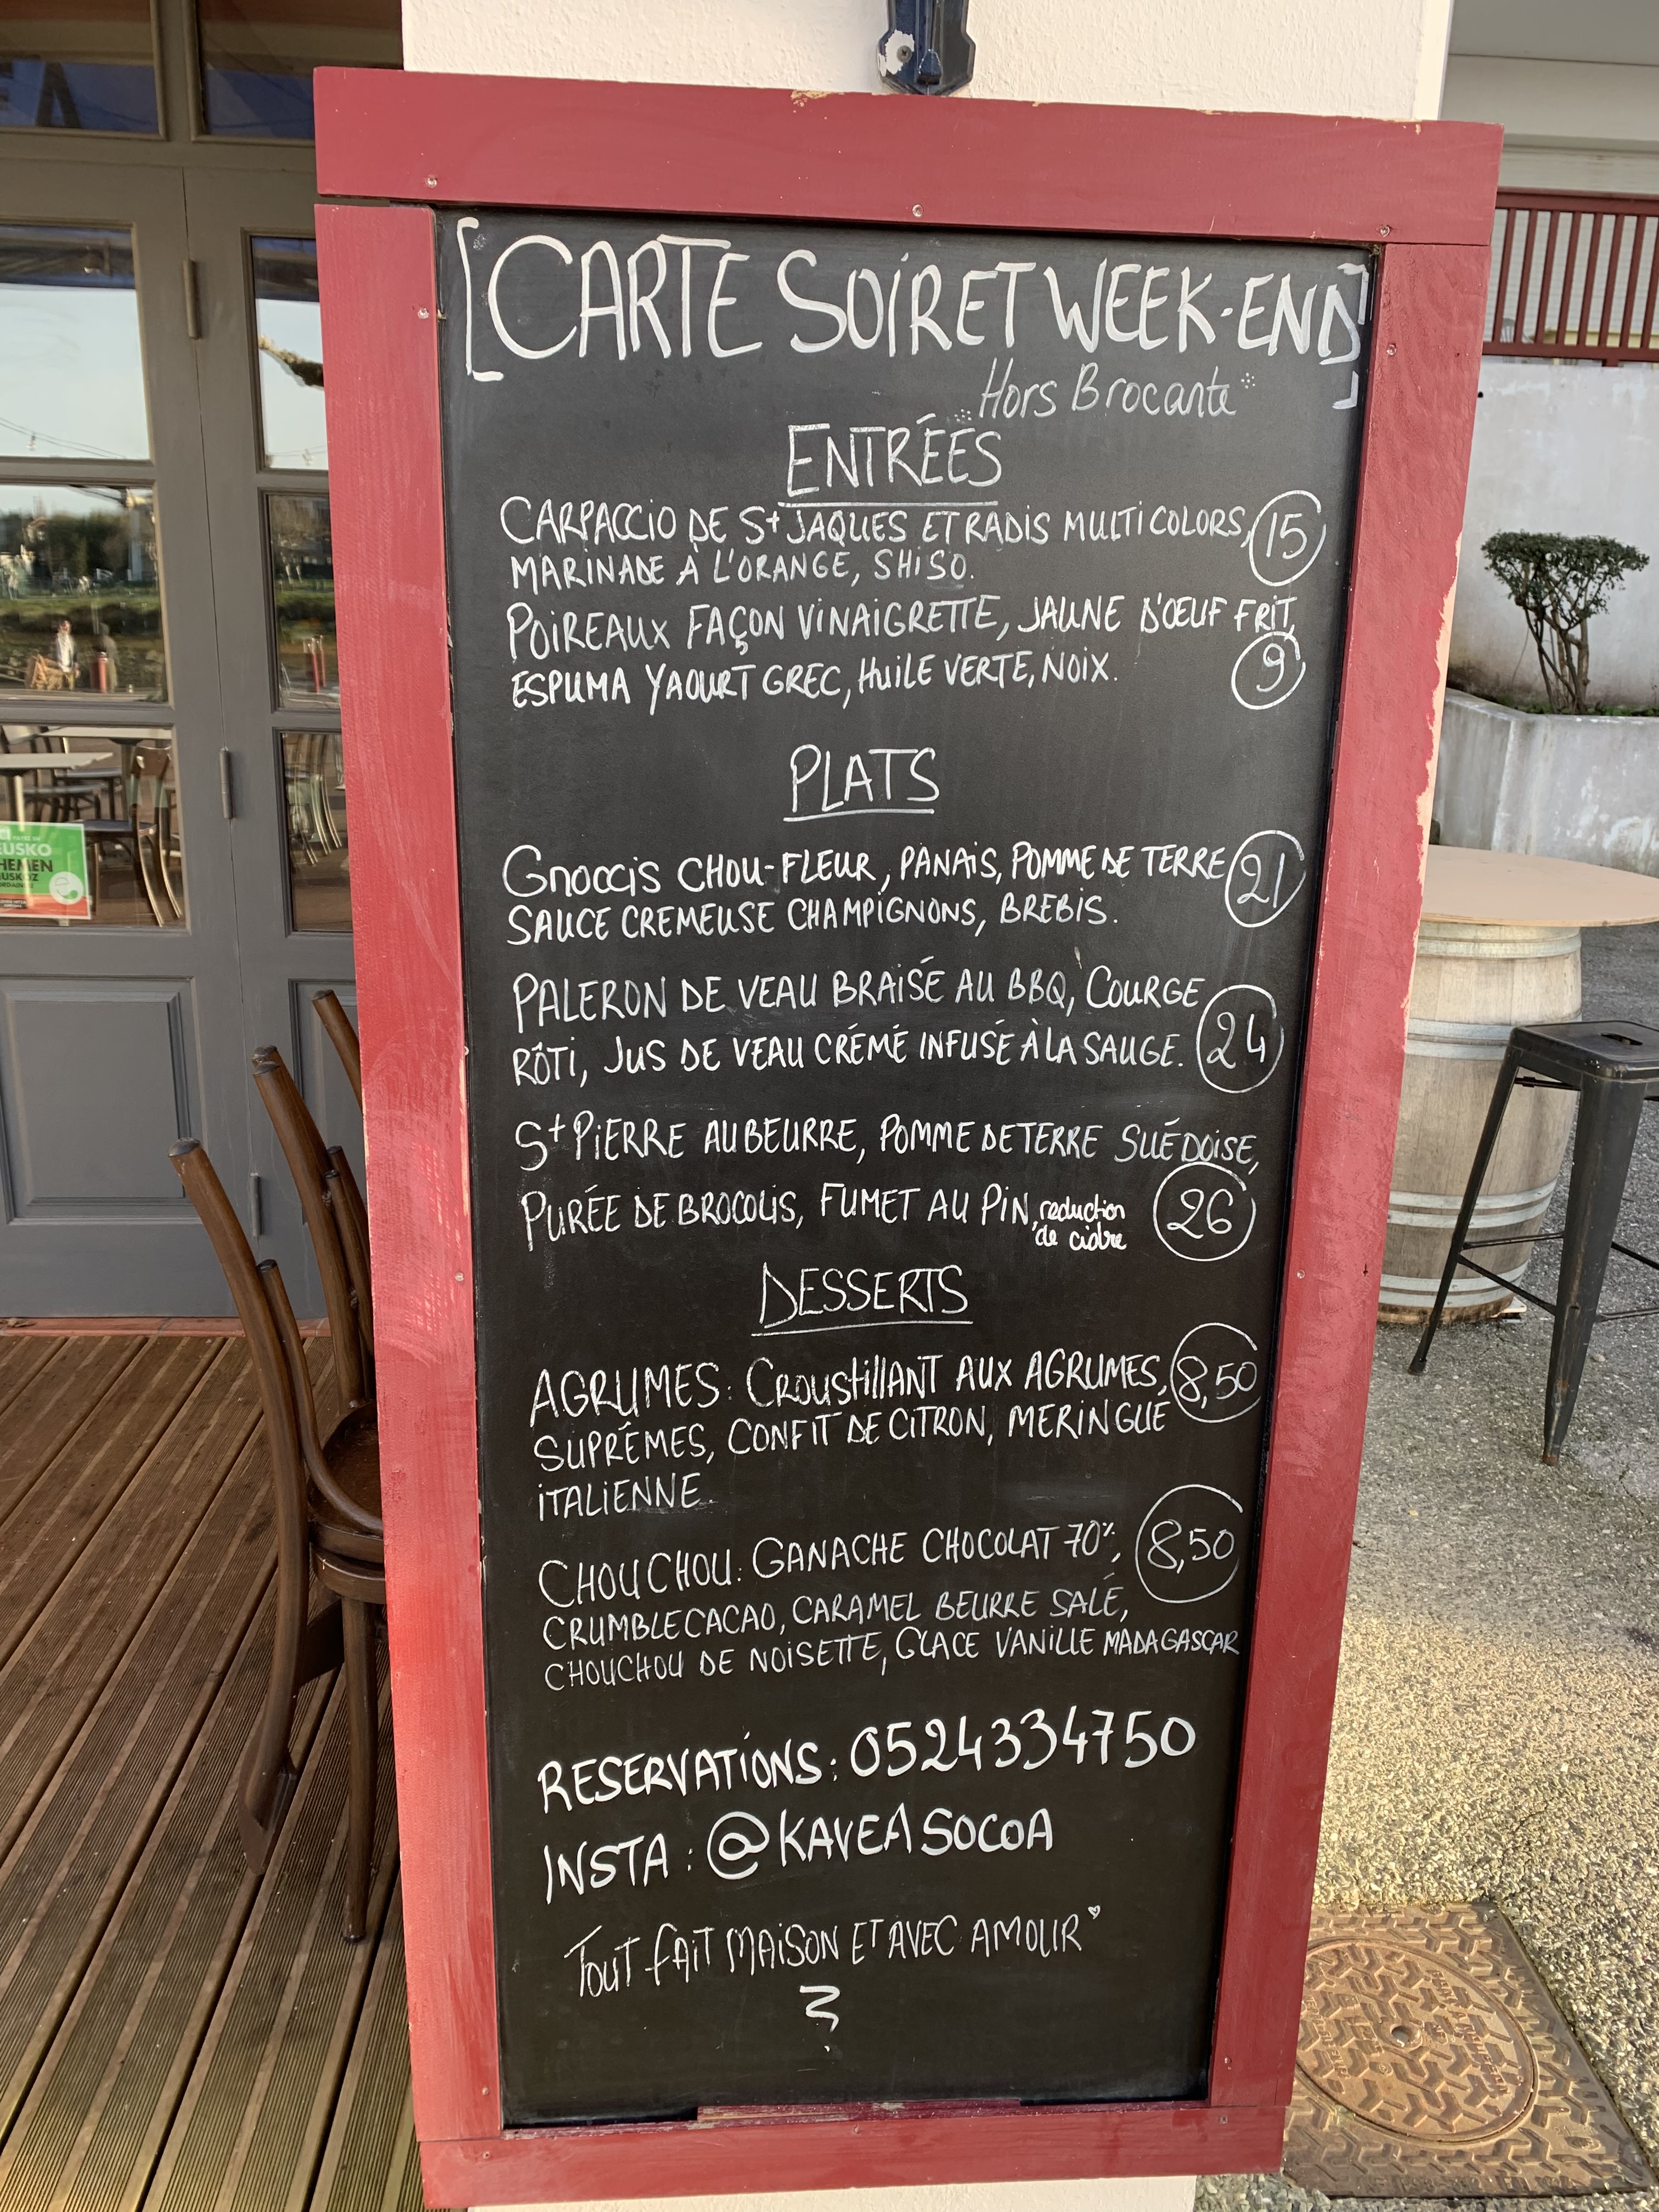 [CARTE SOIR ET WEEK-END]
Hors Brocante
ENTRÉES
CARPACCIO DE St JAQUES ET RADIS MULTICOLORS, 15
MARINADE À L'ORANGE, SHISO.
POIREAUX FAÇON VINAIGRETTE, JAUNE D'ŒUF FRIT,
ESPUMA YAOURT GREC, HUILE VERTE, NOIX. 9
PLATS
GNOCCIS CHOU-FLEUR, PANAIS, POMME DE TERRE 21
SAUCE CREMEUSE CHAMPIGNONS, BREBIS.
PALERON DE VEAU BRAISÉ AU BBQ, COURGE
RÔTI, JUS DE VEAU CRÉMÉ INFUSÉ À LA SAUGE. 24
St PIERRE AU BEURRE, POMME DE TERRE SUÉDOISE,
PURÉE DE BROCOLIS, FUMET AU PIN, reduction de cidre 26
DESSERTS
AGRUMES: CROUSTILLANT AUX AGRUMES, 8,50
SUPRÊMES, CONFIT DE CITRON, MERINGUE
ITALIENNE
CHOUCHOU: GANACHE CHOCOLAT 70%, 8,50
CRUMBLE CACAO, CARAMEL BEURRE SALÉ,
CHOUCHOU DE NOISETTE, GLACE VANILLE MADAGASCAR
RESERVATIONS: 0524334750
INSTA: @KAVEASOCOA
TOUT FAIT MAISON ET AVEC AMOUR
EUSKO
HEMEN